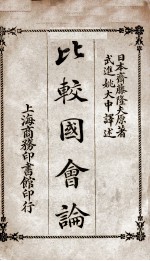 日本齋藤隆夫原著
武進姚大中譯述
比較國會論
上海商務印書館印行